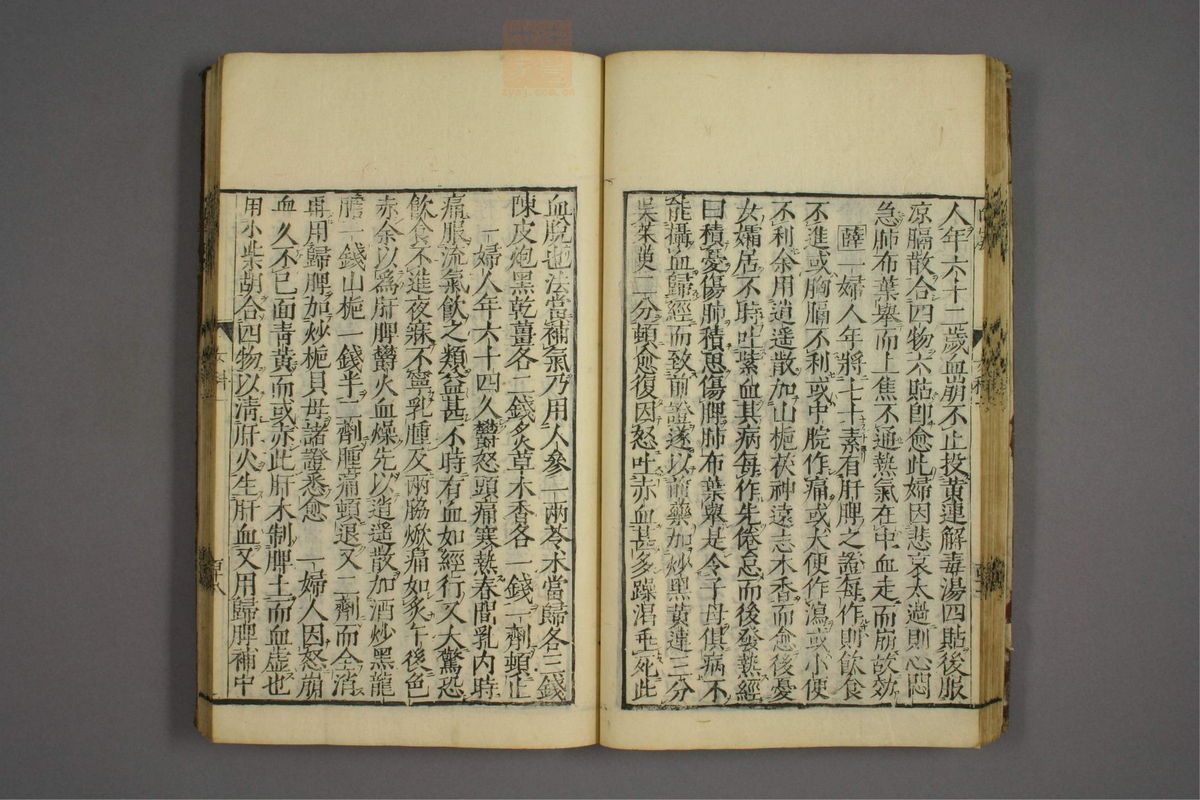 人年六十二歲血崩不止投黃連解毒湯四貼後服
凉膈散合四物六貼卽愈此婦因悲哀太過則心悶
急肺布葉舉而上焦不通熱氣在中血走而崩故效
薛一婦人年將七十素有肝脾之證每作則飲食
不進或胸膈不利或中脘作痛或大便作瀉或小便
不利余用逍遥散加山梔茯神遠志木香而愈後憂
女孀居不時吐紫血其病每作先倦怠而後發熱經
曰積憂傷肺積思傷脾肺布葉舉是令子母俱病不
能攝血歸經而致前證遂以前藥加炒黑黃連三分
吳茱萸二分頓愈復因怒吐赤血甚多躁渴垂死此
血脫也法當補氣乃用人參一兩苓朮當歸各三錢
陳皮炮黑乾薑各二錢炙草木香各一錢一劑頓止
一婦人年六十四久鬱怒頭痛寒熱春間乳内時
痛服流氣飲之類益甚不時有血如經行又大驚恐
飲食不進夜寐不寧乳腫及兩脇焮痛如炙午後色
赤余以爲肝脾鬱火血燥先以逍遥散加酒炒黑龍
膽一錢山梔一錢半二劑腫痛頓退又二劑而全消
再用歸脾加炒梔貝母諸證悉愈 一婦人因怒崩
血久不已面青黃而或赤此肝木制脾土而血虛也
用小柴胡合四物以清肝火生肝血又用歸脾補中
女科
zysj.com.cn